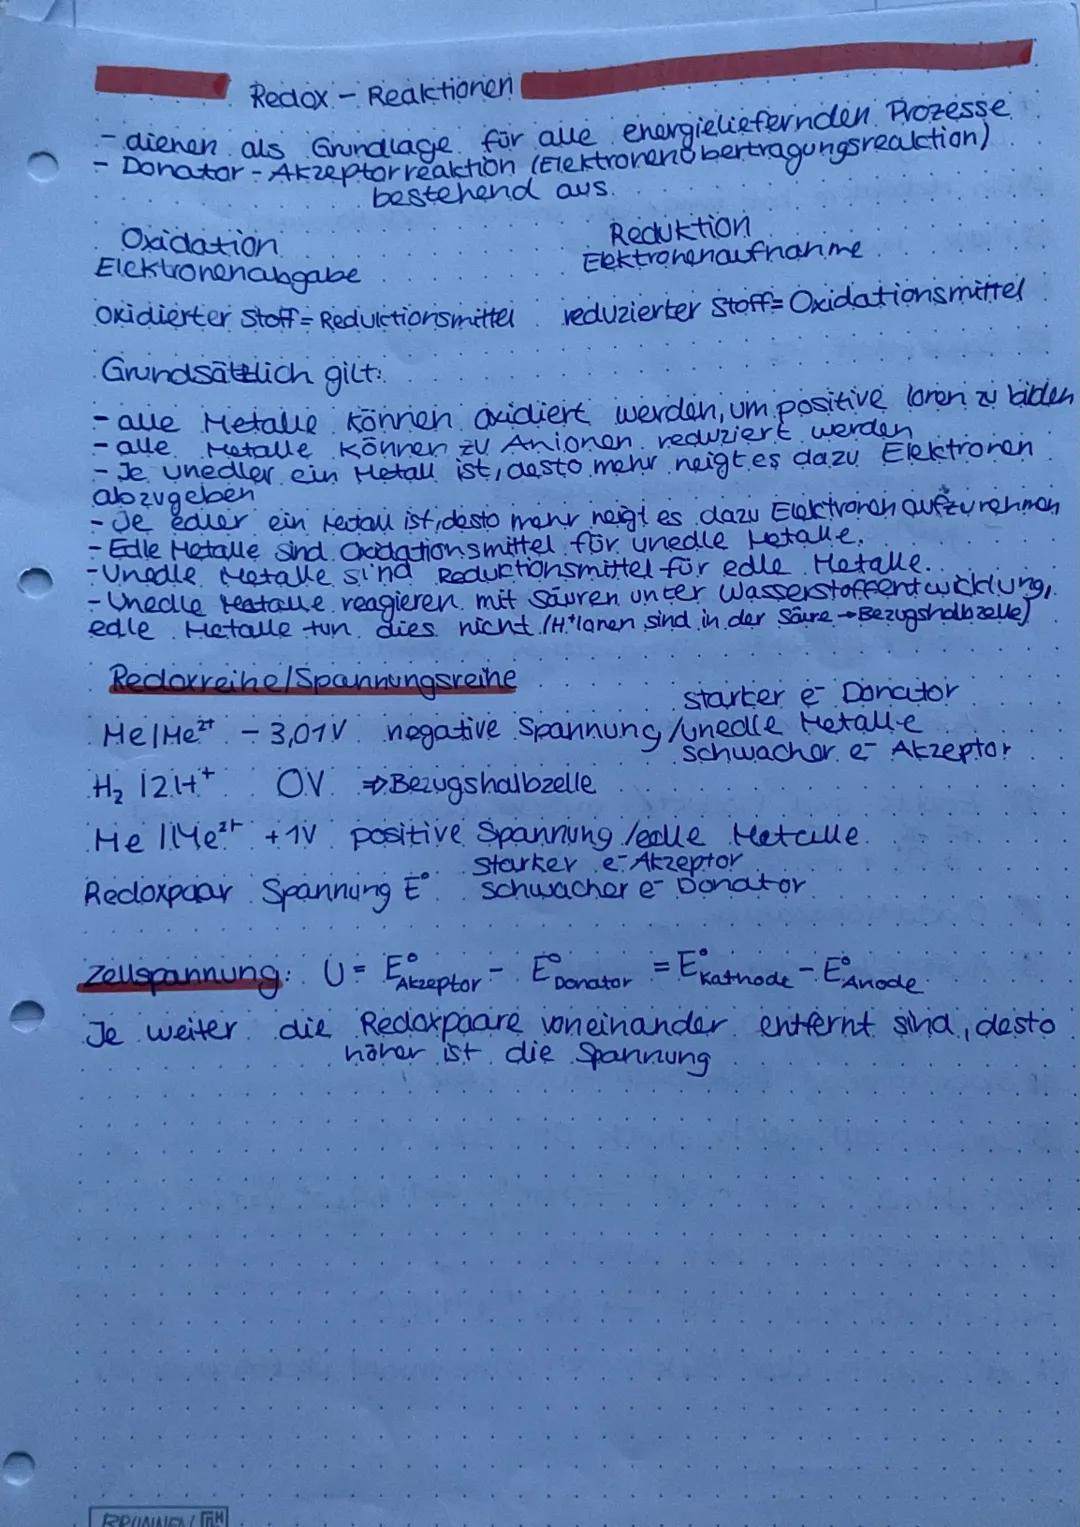 Redox - Reaktionen
- dienen als Grundlage für alle energieliefernden Prozesse
- Donator - Akzeptorreaktion (Elektronenübertragungsreaktion)
bestehend aus
Oxidation Reduktion
Elektronenabgabe Elektronenaufnahme
oxidierter Stoff = Reduktionsmittel reduzierter Stoff = Oxidationsmittel
Grundsätzlich gilt:
- alle Metalle können oxidiert werden, um positive Ionen zu bilden
- alle Metalle können zu Anionen reduziert werden
- Je unedler ein Metall ist, desto mehr neigt es dazu Elektronen
abzugeben
- Je edler ein Metall ist, desto mehr neigt es dazu Elektronen aufzunehmen
- Edle Metalle sind Oxidationsmittel für unedle Metalle.
- Unedle Metalle sind Reductionsmittel für edle Metalle.
- Unedle Metalle reagieren mit Säuren unter Wasserstoffentwicklung,
edle Metalle tun dies nicht (H⁺Ionen sind in der Säure → Bezugshalbzelle)
Redoxreihe/Spannungsreihe
starker e⁻ Donator
Me|Me²⁺ - 3,01V negative Spannung/unedle Metalle
schwacher e⁻ Akzeptor
H₂ |2H⁺ 0V ⇒ Bezugshalbzelle
Me |Me²⁺ +1V positive Spannung/edle Metalle
starker e⁻ Akzeptor
Redoxpaar Spannung E° schwacher e⁻ Donator
Zellspannung: U = E°Akzeptor - E°Donator = E°Kathode - E°Anode
Je weiter die Redoxpaare voneinander entfernt sind, desto
höher ist die Spannung
BRUNNEN